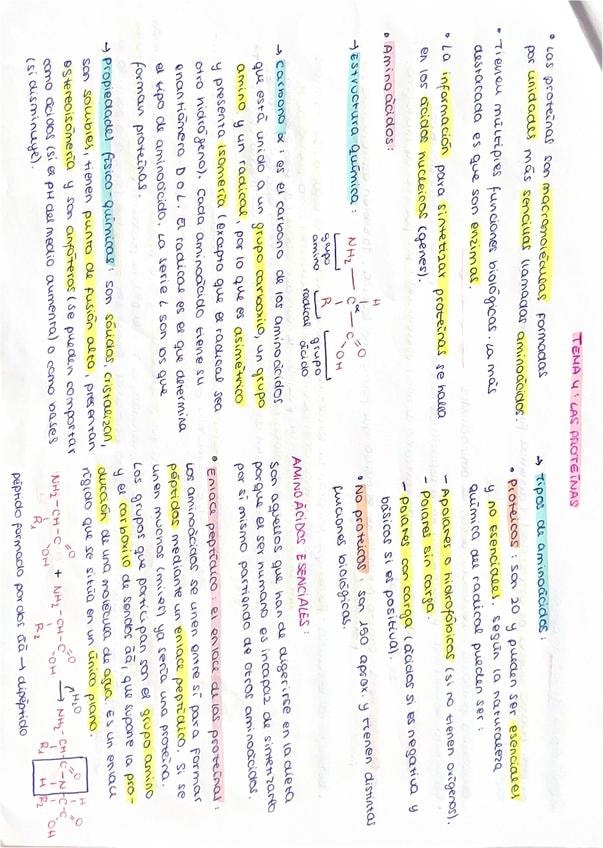 TEMA 4: LAS PROTEÍNAS
• Las proteínas son macromoléculas formadas
por unidades más sencillas llamadas aminoácidos.
• Tienen múltiples funciones biológicas. La más
destacada es que son enzimas.
• La información para sintetizar proteínas se halla
en los ácidos nucleicos (genes).
• Aminoácidos:
→ Estructura química:
H
NH₂ — C — C
α
O
OH
R
grupo
amino
radical
grupo
ácido
→ Carbono α: es el carbono de los aminoácidos
que está unido a un grupo carboxilo, un grupo
amino y un radical, por lo que es asimétrico
y presenta isomería (excepto que el radical sea
otro hidrógeno). Cada aminoácido tiene su
enantiómero D o L. El radical es el que determina
el tipo de aminoácido. La serie L son os que
forman proteínas.
→ Propiedades físico-químicas: son sólidos, cristalizan,
son solubles, tienen punto de fusión alto, presentan
estereoisomería y son anfóteros (se pueden comportar
como ácidos (si el pH del medio aumenta) o como bases
(si disminuye).
→ Tipos de aminoácidos:
• Proteicos: son 20 y pueden ser esenciales
y no esenciales. Según la naturaleza
química del radical pueden ser:
- Apolares o hidrofóbicos (si no tienen oxígenos).
- Polares sin carga.
- Polares con carga (ácidos si es negativa y
básicos si es positiva).
• No proteicos: son 150 aprox. y tienen distintas
funciones biológicas.
AMINOÁCIDOS ESENCIALES:
Son aquellos que han de digerirse en la dieta
porque el ser humano es incapaz de sintetizarlo
por sí mismo partiendo de otros aminoácidos.
• Enlace peptídico: el enlace de las proteínas:
Los aminoácidos se unen entre sí para formar
péptidos mediante un enlace peptídico. Si se
unen muchos (miles) ya sería una proteína.
Los grupos que participan son el grupo amino
y el carboxilo de sendos āā, que supone la pro-
ducción de una molécula de agua. Es un enlace
rígido que se sitúa en un único plano.
NH₂-CH-C O OH + NH₂-CH-C O OH → NH₂-CH-C-N-C-C O OH
R₁ R₂ H₂O R₁ O H H R₂
péptido formado por dos āā → dipéptido